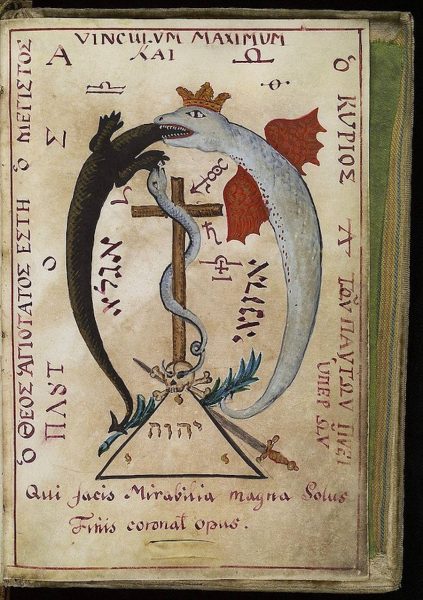 VINCULUM MAXIMUM
Α ΚΑΙ
Σ
Ο
Ὁ ΘΕΟΣ ἉΓΙΟΤΑΤΟΣ ΕΣΤΗ Ὁ ΜΕΓΙΣΤΟΣ
Ὁ ΚΥΡΙΟΣ
ΤΩΝ ΠΑΥΤΩΝ
ΥΠΕΡ ΩΝ
אגלא
אדוני
יהוה
Qui facis Mirabilia magna Solus
Finis coronat opus.